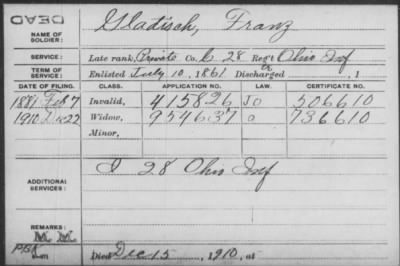 DEAD
NAME OF SOLDIER: Gladisch, Franz
SERVICE: Late rank, Private Co. C, 28 Reg't Ohio Inf
TERM OF SERVICE: Enlisted July 10, 1861 Discharged , 1
DATE OF FILING. CLASS. APPLICATION NO. LAW. CERTIFICATE NO.
1881 Feb 7 Invalid, 415826 506610
1910 Dec 22 Widow, 954637 O 736610
Minor,
ADDITIONAL SERVICES: I 28 Ohio Inf
REMARKS:
Died Dec 15, 1910, at